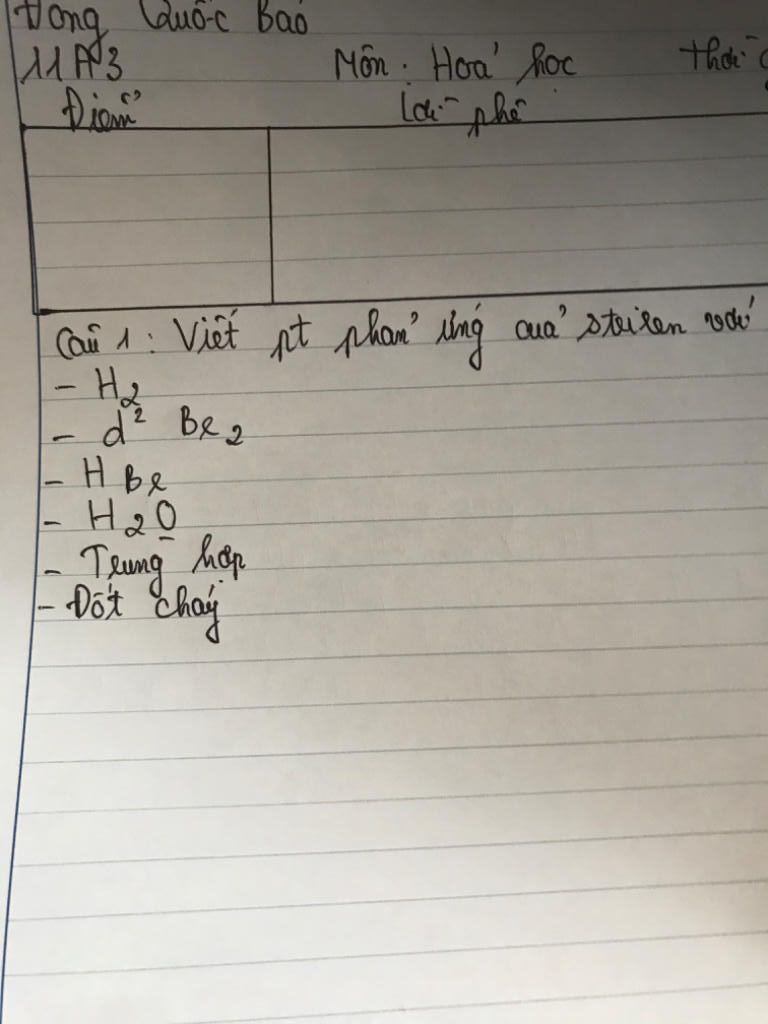 Đồng Quốc Bảo
11A3 Môn: Hoá học thời g
Điểm Lời phê
Câu 1: Viết pt phản ứng của stiren với
- H2
- d² Br2
- HBr
- H2O
- Trùng hợp
- Đốt cháy